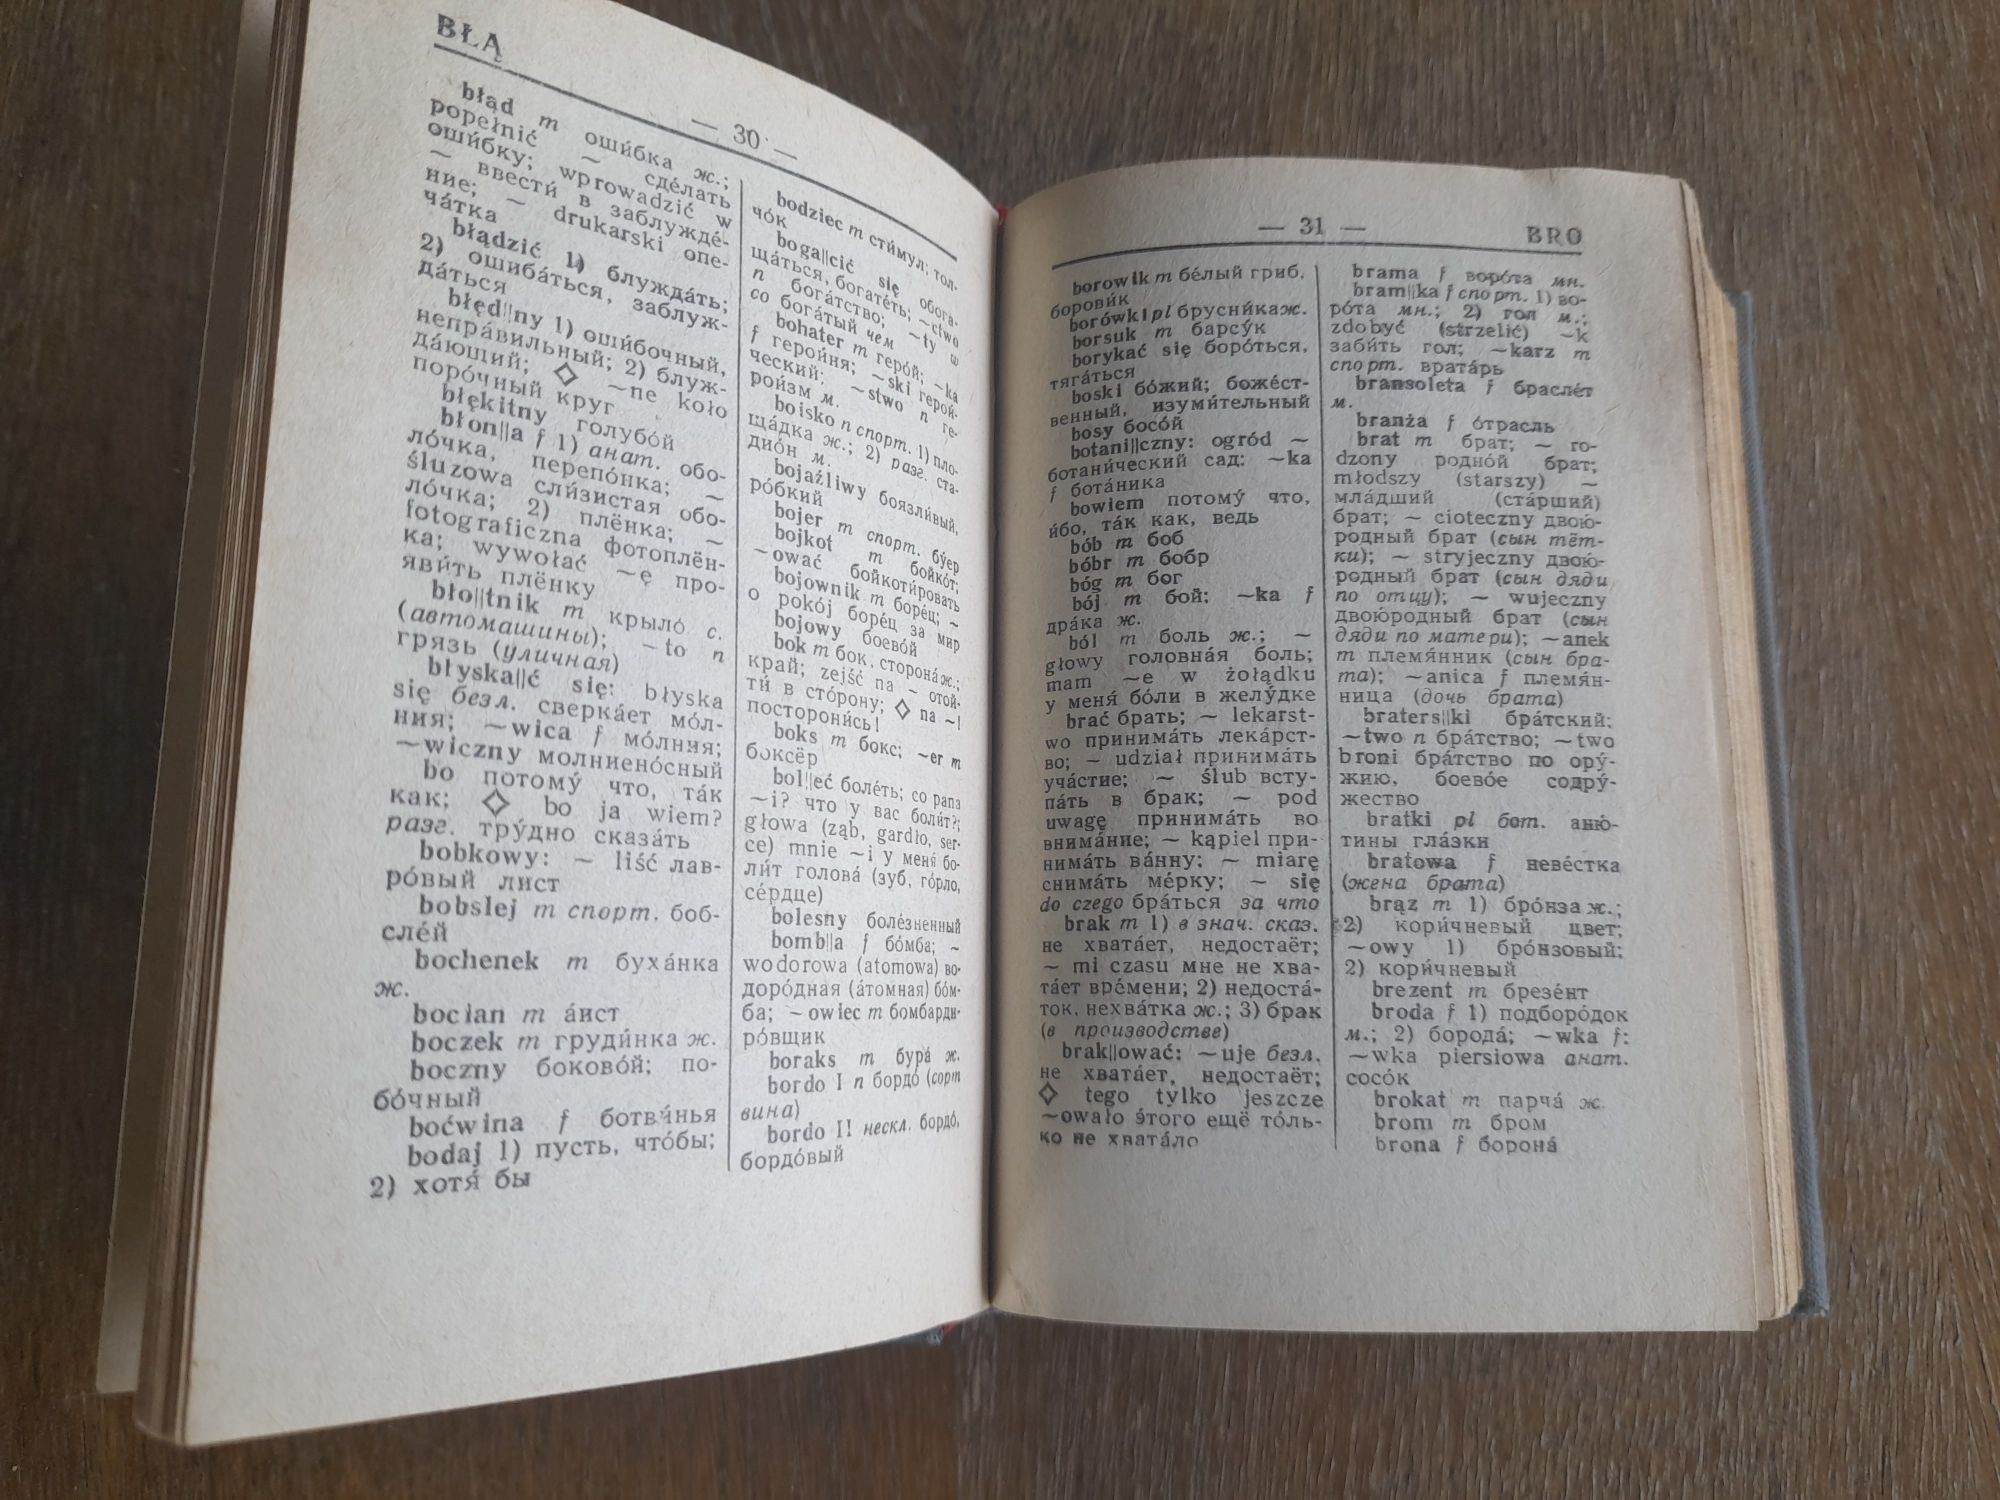 BŁĄ
— 30 —
błąd m оши́бка ж.;
popełnić ~ сде́лать
оши́бку; wprowadzić w
~ ввести́ в заблужде́-
ние; ~ drukarski опе-
ча́тка
błądzić 1) блужда́ть;
2) ошиба́ться, заблуж-
да́ться
błęd||ny 1) оши́бочный,
непра́вильный; 2) блуж-
да́ющий; ◇ ~ne koło
поро́чный круг
błękitny голубо́й
błon||a f 1) анат. обо-
ло́чка, перепо́нка; ~
śluzowa сли́зистая обо-
ло́чка; 2) плёнка; ~
fotograficzna фотоплён-
ка; wywołać ~ę про-
яви́ть плёнку
bło||tnik m крыло́ с.
(автомашины); ~to n
грязь (уличная)
błyska||ć się: błyska
się безл. сверка́ет мо́л-
ния; ~wica f мо́лния;
~wiczny молниено́сный
bo потому́ что, так
как; ◇ bo ja wiem?
разг. тру́дно сказа́ть
bobkowy: ~ liść лав-
ро́вый лист
bobslej m спорт. боб-
сле́й
bochenek m буха́нка
ж.
bocian m а́ист
boczek m груди́нка ж.
boczny боково́й; по-
бо́чный
boćwina f ботви́нья
bodaj 1) пусть, что́бы;
2) хотя́ бы
bodziec m сти́мул; тол-
чо́к
boga||cić się обога-
ща́ться, богате́ть; ~ctwo
n бога́тство; ~ty w
co бога́тый чем
bohater m геро́й; ~ka
f герои́ня; ~ski герой-
ческий; ~stwo n ге-
рои́зм м.
boisko n спорт. 1) пло-
ща́дка ж.; 2) разг. ста-
дио́н м.
bojaźliwy боязли́вый,
ро́бкий
bojer m спорт. бу́ер
bojkot m бойко́т;
~ować бойкоти́ровать
bojownik m боре́ц; ~
o pokój боре́ц за мир
bojowy боево́й
bok m бок, сторона́ ж.;
край; zejść na ~ отой-
ти́ в сто́рону; ◇ na ~!
посторони́сь!
boks m бокс; ~er m
боксёр
bol||eć боле́ть; co pana
~i? что у вас боли́т?;
głowa (ząb, gardło, ser-
ce) mnie ~i у меня́ бо-
ли́т голова́ (зуб, го́рло,
се́рдце)
bolesny боле́зненный
bomb||a f бо́мба; ~
wodorowa (atomowa) во-
доро́дная (а́томная) бо́м-
ба; ~owiec m бомбарди-
ро́вщик
boraks m бура́ ж.
bordo I n бордо́ (сорт
вина)
bordo II нескл. бордо́,
бордо́вый
— 31 —
BRO
borowik m бе́лый гриб,
борови́к
borówki pl брусни́ка ж.
borsuk m барсу́к
borykać się боро́ться,
тяга́ться
boski бо́жий; боже́ст-
венный, изуми́тельный
bosy босо́й
botani||czny: ogród ~
ботани́ческий сад; ~ka
f бота́ника
bowiem потому́ что,
и́бо, та́к как, ведь
bób m боб
bóbr m бобр
bóg m бог
bój m бой; ~ka f
дра́ка ж.
ból m боль ж.; ~
głowy головна́я боль;
mam ~e w żołądku
у меня́ бо́ли в желу́дке
brać брать; ~ lekarst-
wo принима́ть лека́рст-
во; ~ udział принима́ть
уча́стие; ~ ślub всту-
па́ть в брак; ~ pod
uwagę принима́ть во
внима́ние; ~ kąpiel при-
нима́ть ва́нну; ~ miarę
снима́ть ме́рку; ~ się
do czego бра́ться за что
brak m 1) в знач. сказ.
не хвата́ет, недостаёт;
~ mi czasu мне не хва-
та́ет вре́мени; 2) недоста́-
ток, нехва́тка ж.; 3) брак
(в производстве)
brak||ować: ~uje безл.
не хвата́ет, недостаёт;
◇ tego tylko jeszcze
~owało э́того ещё то́ль-
ко не хвата́ло
brama f воро́та мн.
bram||ka f спорт. 1) во-
ро́та мн.; 2) гол м.;
zdobyć (strzelić) ~k
заби́ть гол; ~karz m
спорт. врата́рь
bransoleta f брасле́т
м.
branża f о́трасль
brat m брат; ~ ro-
dzony родно́й брат;
młodszy (starszy) ~
мла́дший (ста́рший)
брат; ~ cioteczny двою́-
родный брат (сын тёт-
ки); ~ stryjeczny двою́-
родный брат (сын дяди
по отцу); ~ wujeczny
двою́родный брат (сын
дяди по матери); ~anek
m племя́нник (сын бра-
та); ~anica f племя́н-
ница (дочь брата)
braters||ki бра́тский;
~two n бра́тство; ~two
broni бра́тство по ору́-
жию, боево́е содру́-
жество
bratki pl бот. аню́-
тины гла́зки
bratowa f неве́стка
(жена брата)
brąz m 1) бро́нза ж.;
2) кори́чневый цвет;
~owy 1) бро́нзовый;
2) кори́чневый
brezent m брезе́нт
broda f 1) подборо́док
м.; 2) борода́; ~wka f:
~wka piersiowa анат.
сосо́к
brokat m парча́ ж.
brom m бром
brona f борона́